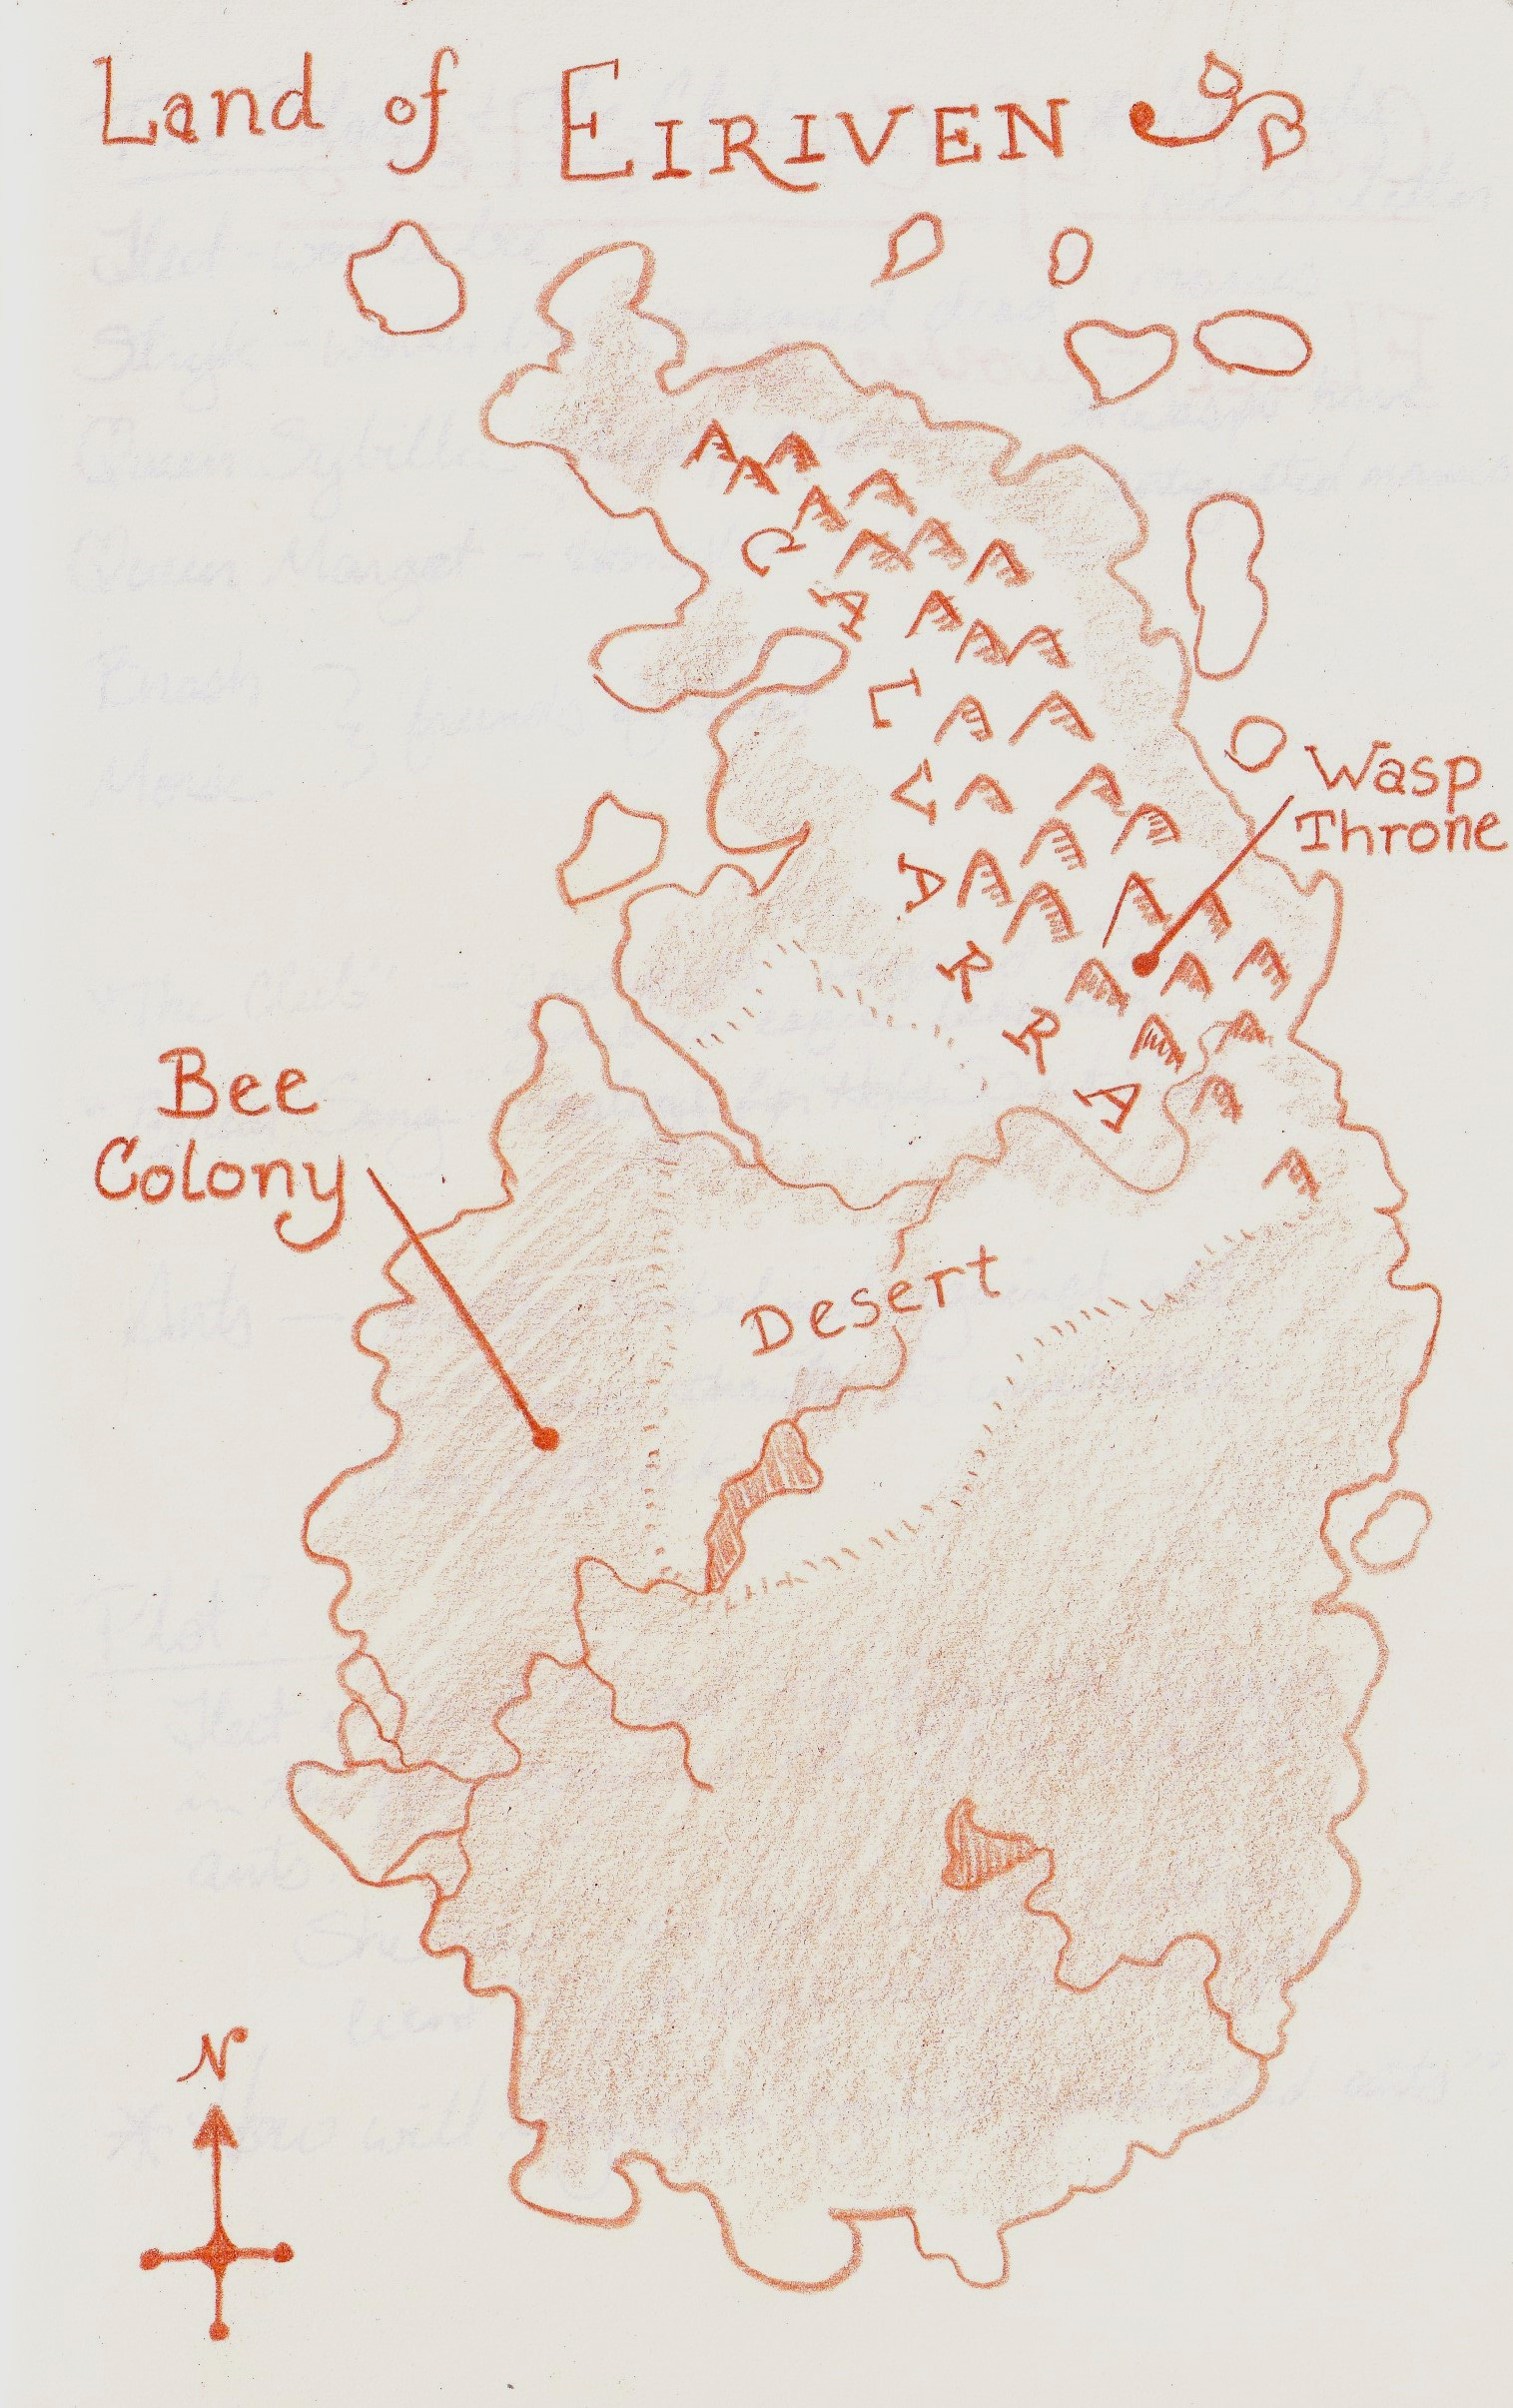 Land of EIRIVEN
CALCARRA
Wasp
Throne
Bee
Colony
Desert
N